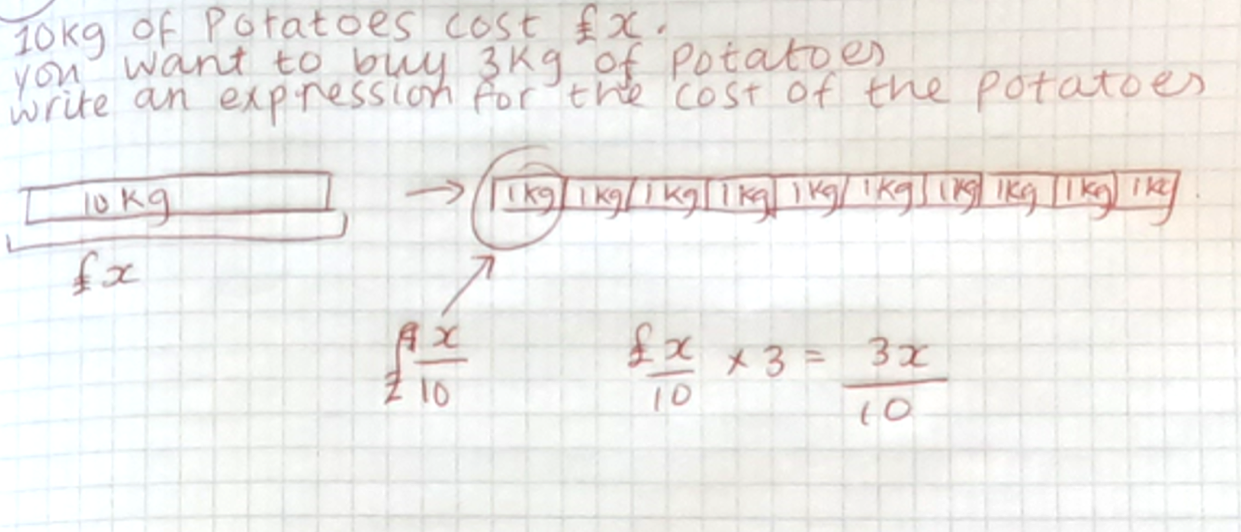 10kg of Potatoes cost £x.
you want to buy 3kg of potatoes
write an expression for the cost of the potatoes
10kg → 1kg 1kg 1kg 1kg 1kg 1kg 1kg 1kg 1kg 1kg
£x
£x/10 £x/10 × 3 = 3x/10